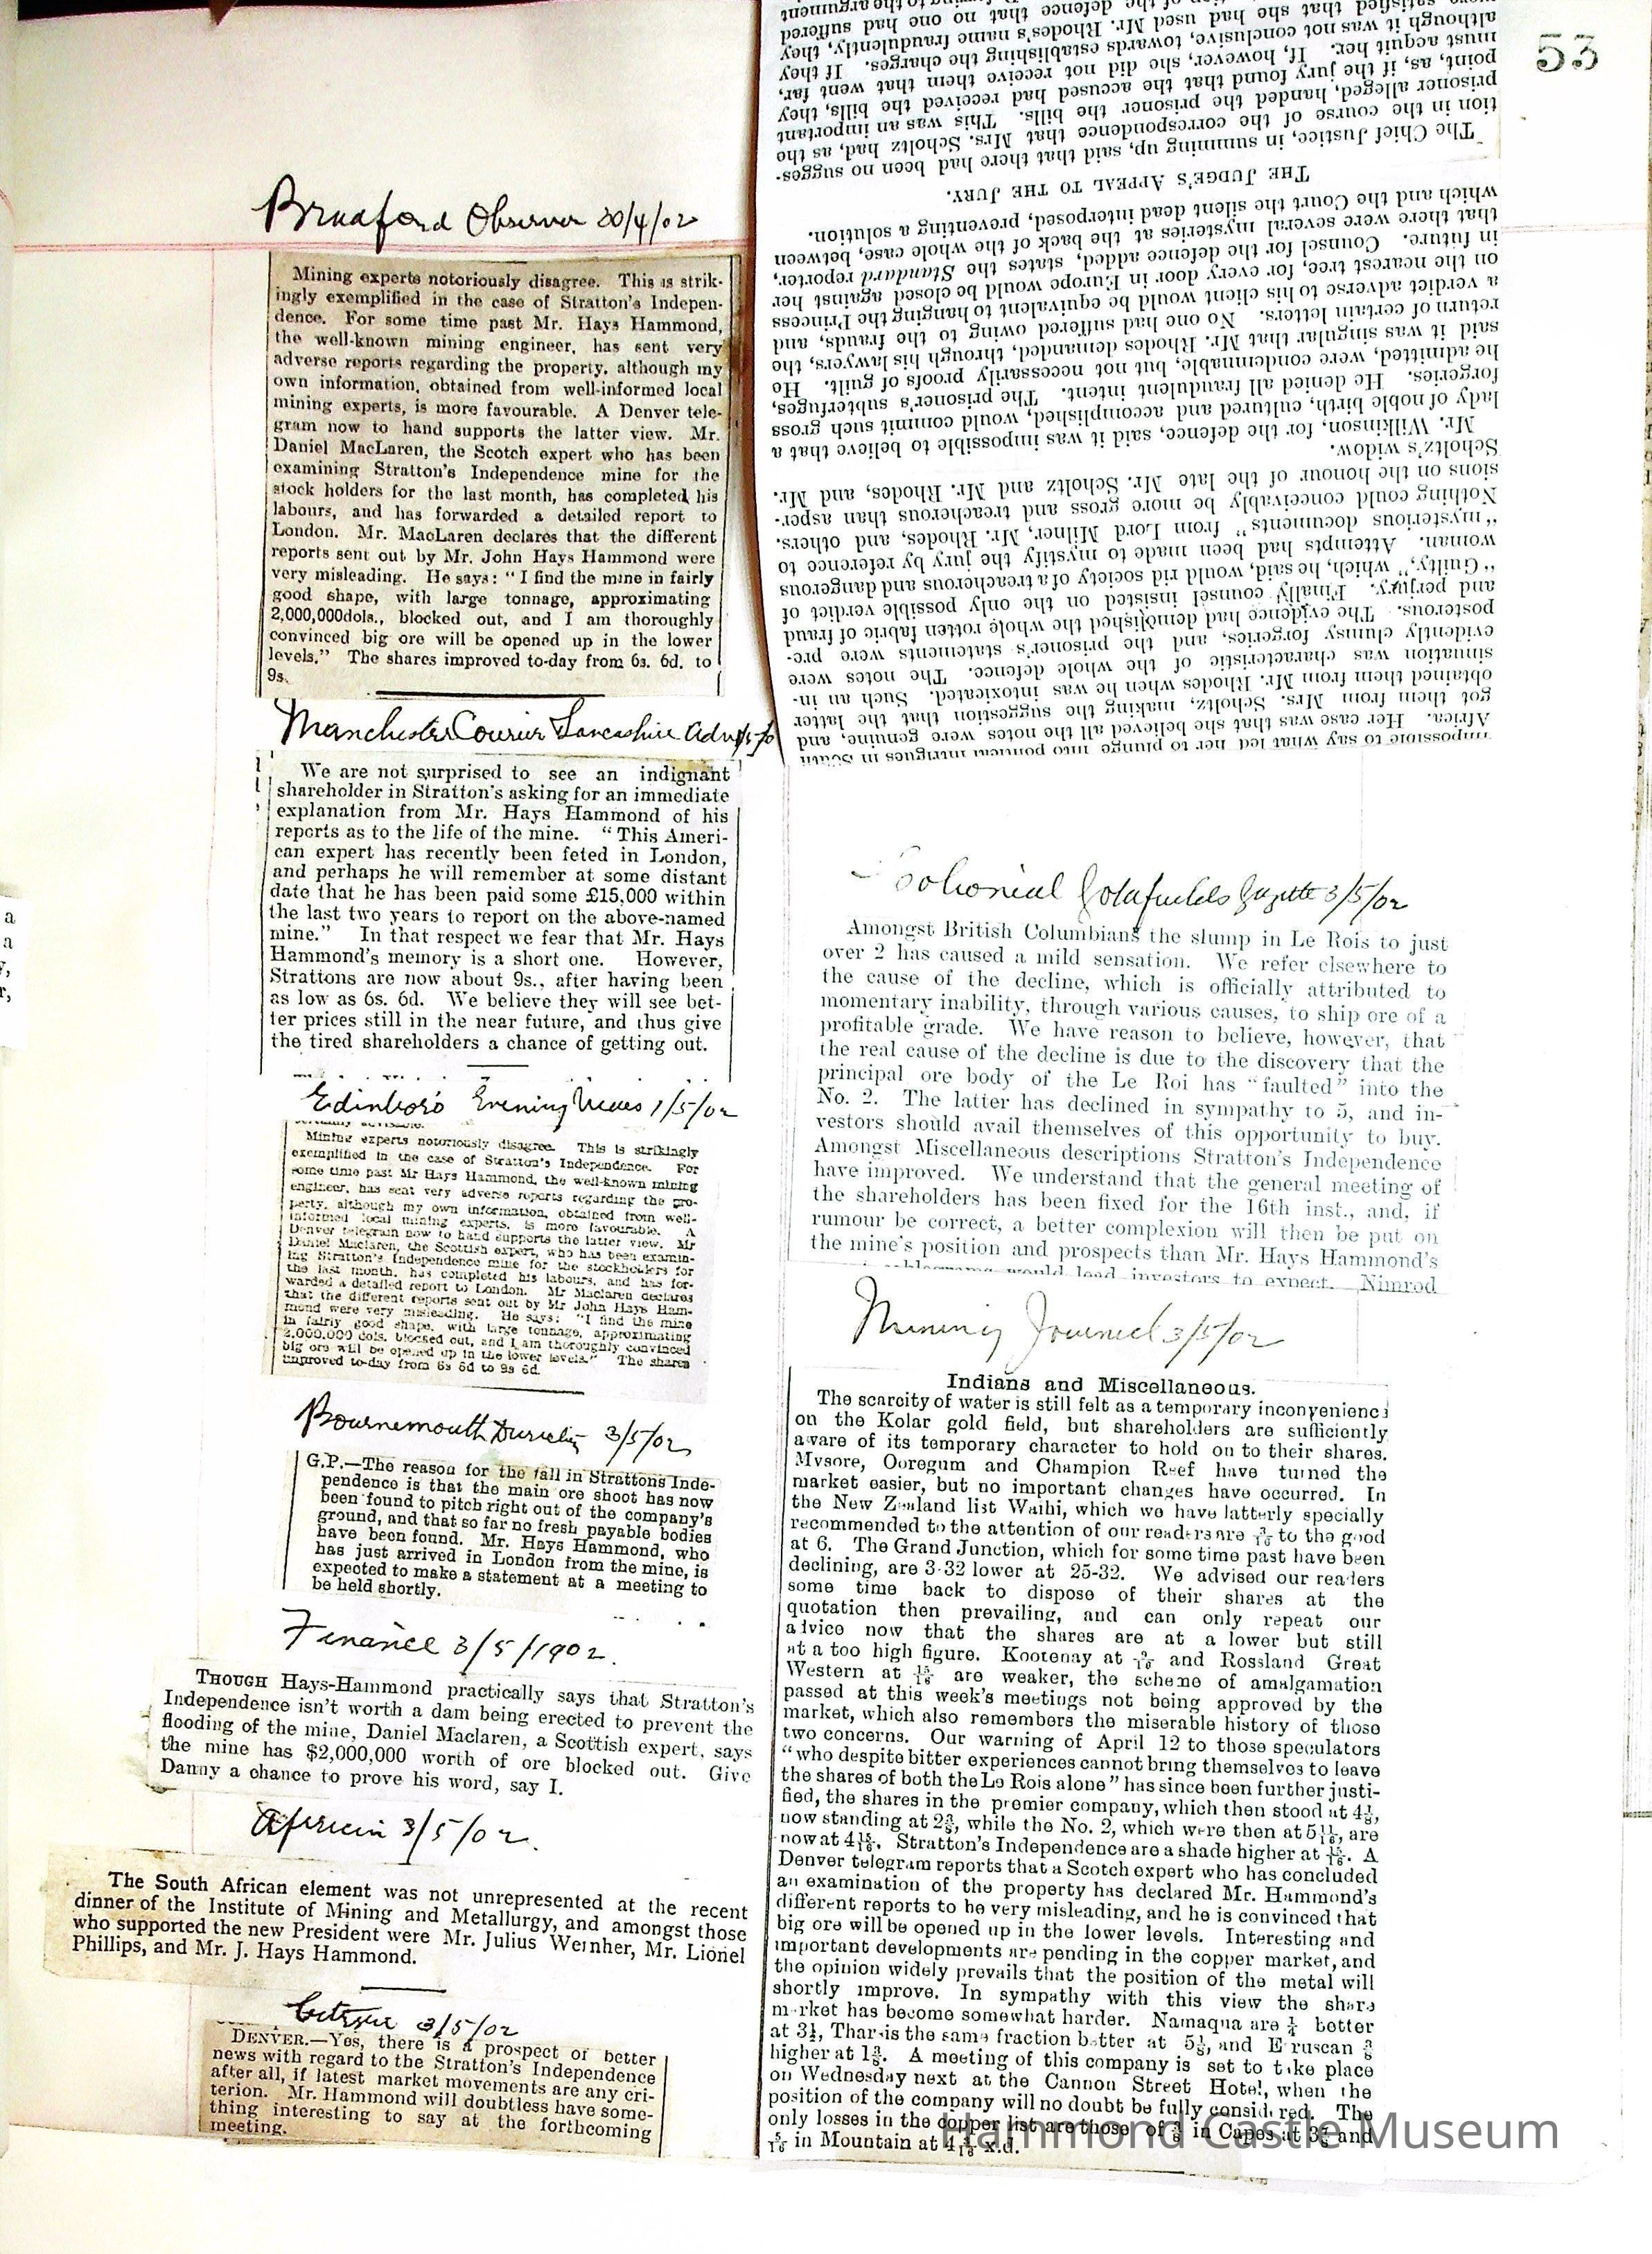 53
Bradford Observer 30/4/02
Mining experts notoriously disagree. This is strik-
ingly exemplified in the case of Stratton's Indepen-
dence. For some time past Mr. Hays Hammond,
the well-known mining engineer, has sent very
adverse reports regarding the property, although my
own information, obtained from well-informed local
mining experts, is more favourable. A Denver tele-
gram now to hand supports the latter view. Mr.
Daniel MacLaren, the Scotch expert who has been
examining Stratton's Independence mine for the
stock holders for the last month, has completed his
labours, and has forwarded a detailed report to
London. Mr. MacLaren declares that the different
reports sent out by Mr. John Hays Hammond were
very misleading. He says: "I find the mine in fairly
good shape, with large tonnage, approximating
2,000,000dols., blocked out, and I am thoroughly
convinced big ore will be opened up in the lower
levels." The shares improved to-day from 6s. 6d. to
9s.
Manchester Courier Lancashire Adv
We are not surprised to see an indignant
shareholder in Stratton's asking for an immediate
explanation from Mr. Hays Hammond of his
reports as to the life of the mine. "This Ameri-
can expert has recently been feted in London,
and perhaps he will remember at some distant
date that he has been paid some £15,000 within
the last two years to report on the above-named
mine." In that respect we fear that Mr. Hays
Hammond's memory is a short one. However,
Strattons are now about 9s., after having been
as low as 6s. 6d. We believe they will see bet-
ter prices still in the near future, and thus give
the tired shareholders a chance of getting out.
Edinboro Evening News 1/5/02
Mining experts notoriously disagree. This is strikingly
exemplified in the case of Stratton's Independence. For
some time past Mr Hays Hammond, the well-known mining
engineer, has sent very adverse reports regarding the pro-
perty, although my own information, obtained from well-
informed local mining experts, is more favourable. A
Denver telegram now to hand supports the latter view. Mr
Daniel Maclaren, the Scottish expert, who has been examin-
ing Stratton's Independence mine for the stockholders for
the last month, has completed his labours, and has for-
warded a detailed report to London. Mr Maclaren declares
that the different reports sent out by Mr John Hays Ham-
mond were very misleading. He says: "I find the mine
in fairly good shape, with large tonnage, approximating
2,000,000 dols. blocked out, and I am thoroughly convinced
big ore will be opened up in the lower levels." The shares
improved to-day from 6s 6d to 9s 6d.
Bournemouth 3/5/02
G.P.—The reason for the fall in Strattons Inde-
pendence is that the main ore shoot has now
been found to pitch right out of the company's
ground, and that so far no fresh payable bodies
have been found. Mr. Hays Hammond, who
has just arrived in London from the mine, is
expected to make a statement at a meeting to
be held shortly.
Finance 3/5/1902.
THOUGH Hays-Hammond practically says that Stratton's
Independence isn't worth a dam being erected to prevent the
flooding of the mine, Daniel Maclaren, a Scottish expert, says
the mine has $2,000,000 worth of ore blocked out. Give
Danny a chance to prove his word, say I.
African 3/5/02.
The South African element was not unrepresented at the recent
dinner of the Institute of Mining and Metallurgy, and amongst those
who supported the new President were Mr. Julius Wernher, Mr. Lionel
Phillips, and Mr. J. Hays Hammond.
3/5/02
DENVER.—Yes, there is a prospect of better
news with regard to the Stratton's Independence
after all, if latest market movements are any cri-
terion. Mr. Hammond will doubtless have some-
thing interesting to say at the forthcoming
meeting.
impossible to say what led her to plunge into political intrigues in South
Africa. Her case was that she believed all the notes were genuine, and
got them from Mrs. Scholtz, making the suggestion that the latter
obtained them from Mr. Rhodes when he was intoxicated. Such an in-
sinuation was characteristic of the whole defence. The notes were
evidently clumsy forgeries, and the prisoner's statements were pre-
posterous. The evidence had demolished the whole rotten fabric of fraud
and perjury. Finally counsel insisted on the only possible verdict of
"Guilty," which, he said, would rid society of a treacherous and dangerous
woman. Attempts had been made to mystify the jury by reference to
"mysterious documents" from Lord Milner, Mr. Rhodes, and others.
Nothing could conceivably be more gross and treacherous than asper-
sions on the honour of the late Mr. Scholtz and Mr. Rhodes, and Mr.
Scholtz's widow.
Mr. Wilkinson, for the defence, said it was impossible to believe that a
lady of noble birth, cultured and accomplished, would commit such gross
forgeries. He denied all fraudulent intent. The prisoner's subterfuges,
he admitted, were condemnable, but not necessarily proofs of guilt. He
said it was singular that Mr. Rhodes demanded, through his lawyers, the
return of certain letters. No one had suffered owing to the frauds, and
a verdict adverse to his client would be equivalent to hanging the Princess
on the nearest tree, for every door in Europe would be closed against her
in future. Counsel for the defence added, states the Standard reporter,
that there were several mysteries at the back of the whole case, between
which and the Court the silent dead interposed, preventing a solution.
THE JUDGE'S APPEAL TO THE JURY.
The Chief Justice, in summing up, said that there had been no sugges-
tion in the course of the correspondence that Mrs. Scholtz had, as the
prisoner alleged, handed the prisoner the bills. This was an important
point, as, if the jury found that the accused had received the bills, they
must acquit her. If, however, she did not receive them that went far,
although it was not conclusive, towards establishing the charges. If they
were satisfied that she had used Mr. Rhodes's name fraudulently, they
of the defence that no one had suffered
to the argument
Colonial Goldfields Gazette 3/5/02
Amongst British Columbians the slump in Le Rois to just
over 2 has caused a mild sensation. We refer elsewhere to
the cause of the decline, which is officially attributed to
momentary inability, through various causes, to ship ore of a
profitable grade. We have reason to believe, however, that
the real cause of the decline is due to the discovery that the
principal ore body of the Le Roi has "faulted" into the
No. 2. The latter has declined in sympathy to 5, and in-
vestors should avail themselves of this opportunity to buy.
Amongst Miscellaneous descriptions Stratton's Independence
have improved. We understand that the general meeting of
the shareholders has been fixed for the 16th inst., and, if
rumour be correct, a better complexion will then be put on
the mine's position and prospects than Mr. Hays Hammond's
cablegrams would lead investors to expect. Nimrod
Mining Journal 3/5/02
Indians and Miscellaneous.
The scarcity of water is still felt as a temporary inconvenience
on the Kolar gold field, but shareholders are sufficiently
aware of its temporary character to hold on to their shares.
Mysore, Ooregum and Champion Reef have turned the
market easier, but no important changes have occurred. In
the New Zealand list Waihi, which we have latterly specially
recommended to the attention of our readers are 3/16 to the good
at 6. The Grand Junction, which for some time past have been
declining, are 3-32 lower at 25-32. We advised our readers
some time back to dispose of their shares at the
quotation then prevailing, and can only repeat our
advice now that the shares are at a lower but still
at a too high figure. Kootenay at and Rossland Great
Western at 15/16 are weaker, the scheme of amalgamation
passed at this week's meetings not being approved by the
market, which also remembers the miserable history of those
two concerns. Our warning of April 12 to those speculators
"who despite bitter experiences cannot bring themselves to leave
the shares of both the Le Rois alone" has since been further justi-
fied, the shares in the premier company, which then stood at 4⅛,
now standing at 2⅜, while the No. 2, which were then at 5 11/16, are
now at 4 15/16. Stratton's Independence are a shade higher at . A
Denver telegram reports that a Scotch expert who has concluded
an examination of the property has declared Mr. Hammond's
different reports to be very misleading, and he is convinced that
big ore will be opened up in the lower levels. Interesting and
important developments are pending in the copper market, and
the opinion widely prevails that the position of the metal will
shortly improve. In sympathy with this view the share
market has become somewhat harder. Namaqua are ¼ better
at 3½, Tharsis the same fraction better at 5⅛, and Etruscan ⅜
higher at 1⅜. A meeting of this company is set to take place
on Wednesday next at the Cannon Street Hotel, when the
position of the company will no doubt be fully considered. The
only losses in the copper list are those of in Capes at and
5/16 in Mountain at x.d.
Hammond Castle Museum